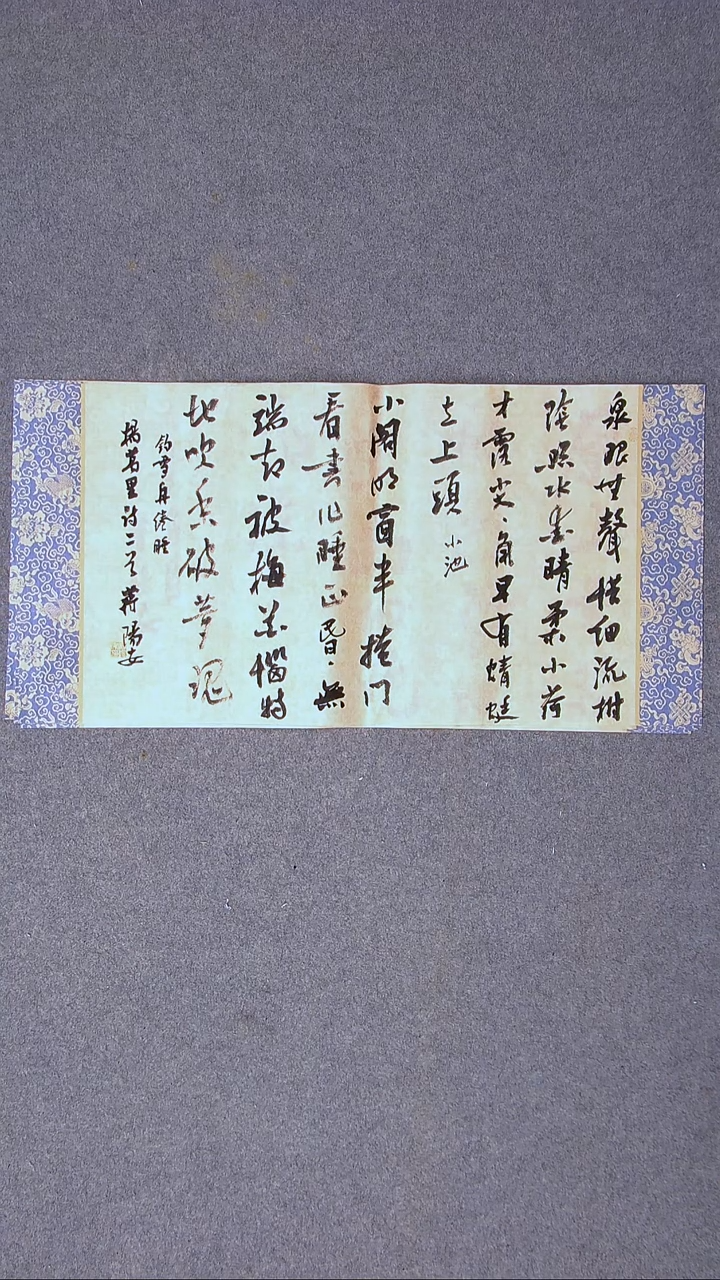 泉眼無聲惜細流樹
陰照水愛晴柔小荷
才露尖々角早有蜻蜓
立上頭 小池
小閣明窗半掩門
看書作睡正昏々無
端却被梅花惱特
地吹香破夢魂
釣雪舟倦睡
楊萬里詩二首 蔣陽安